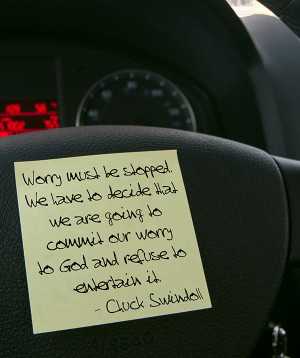 Worry must be stopped.
We have to decide that
we are going to
commit our worry
to God and refuse to
entertain it.
- Chuck Swindoll